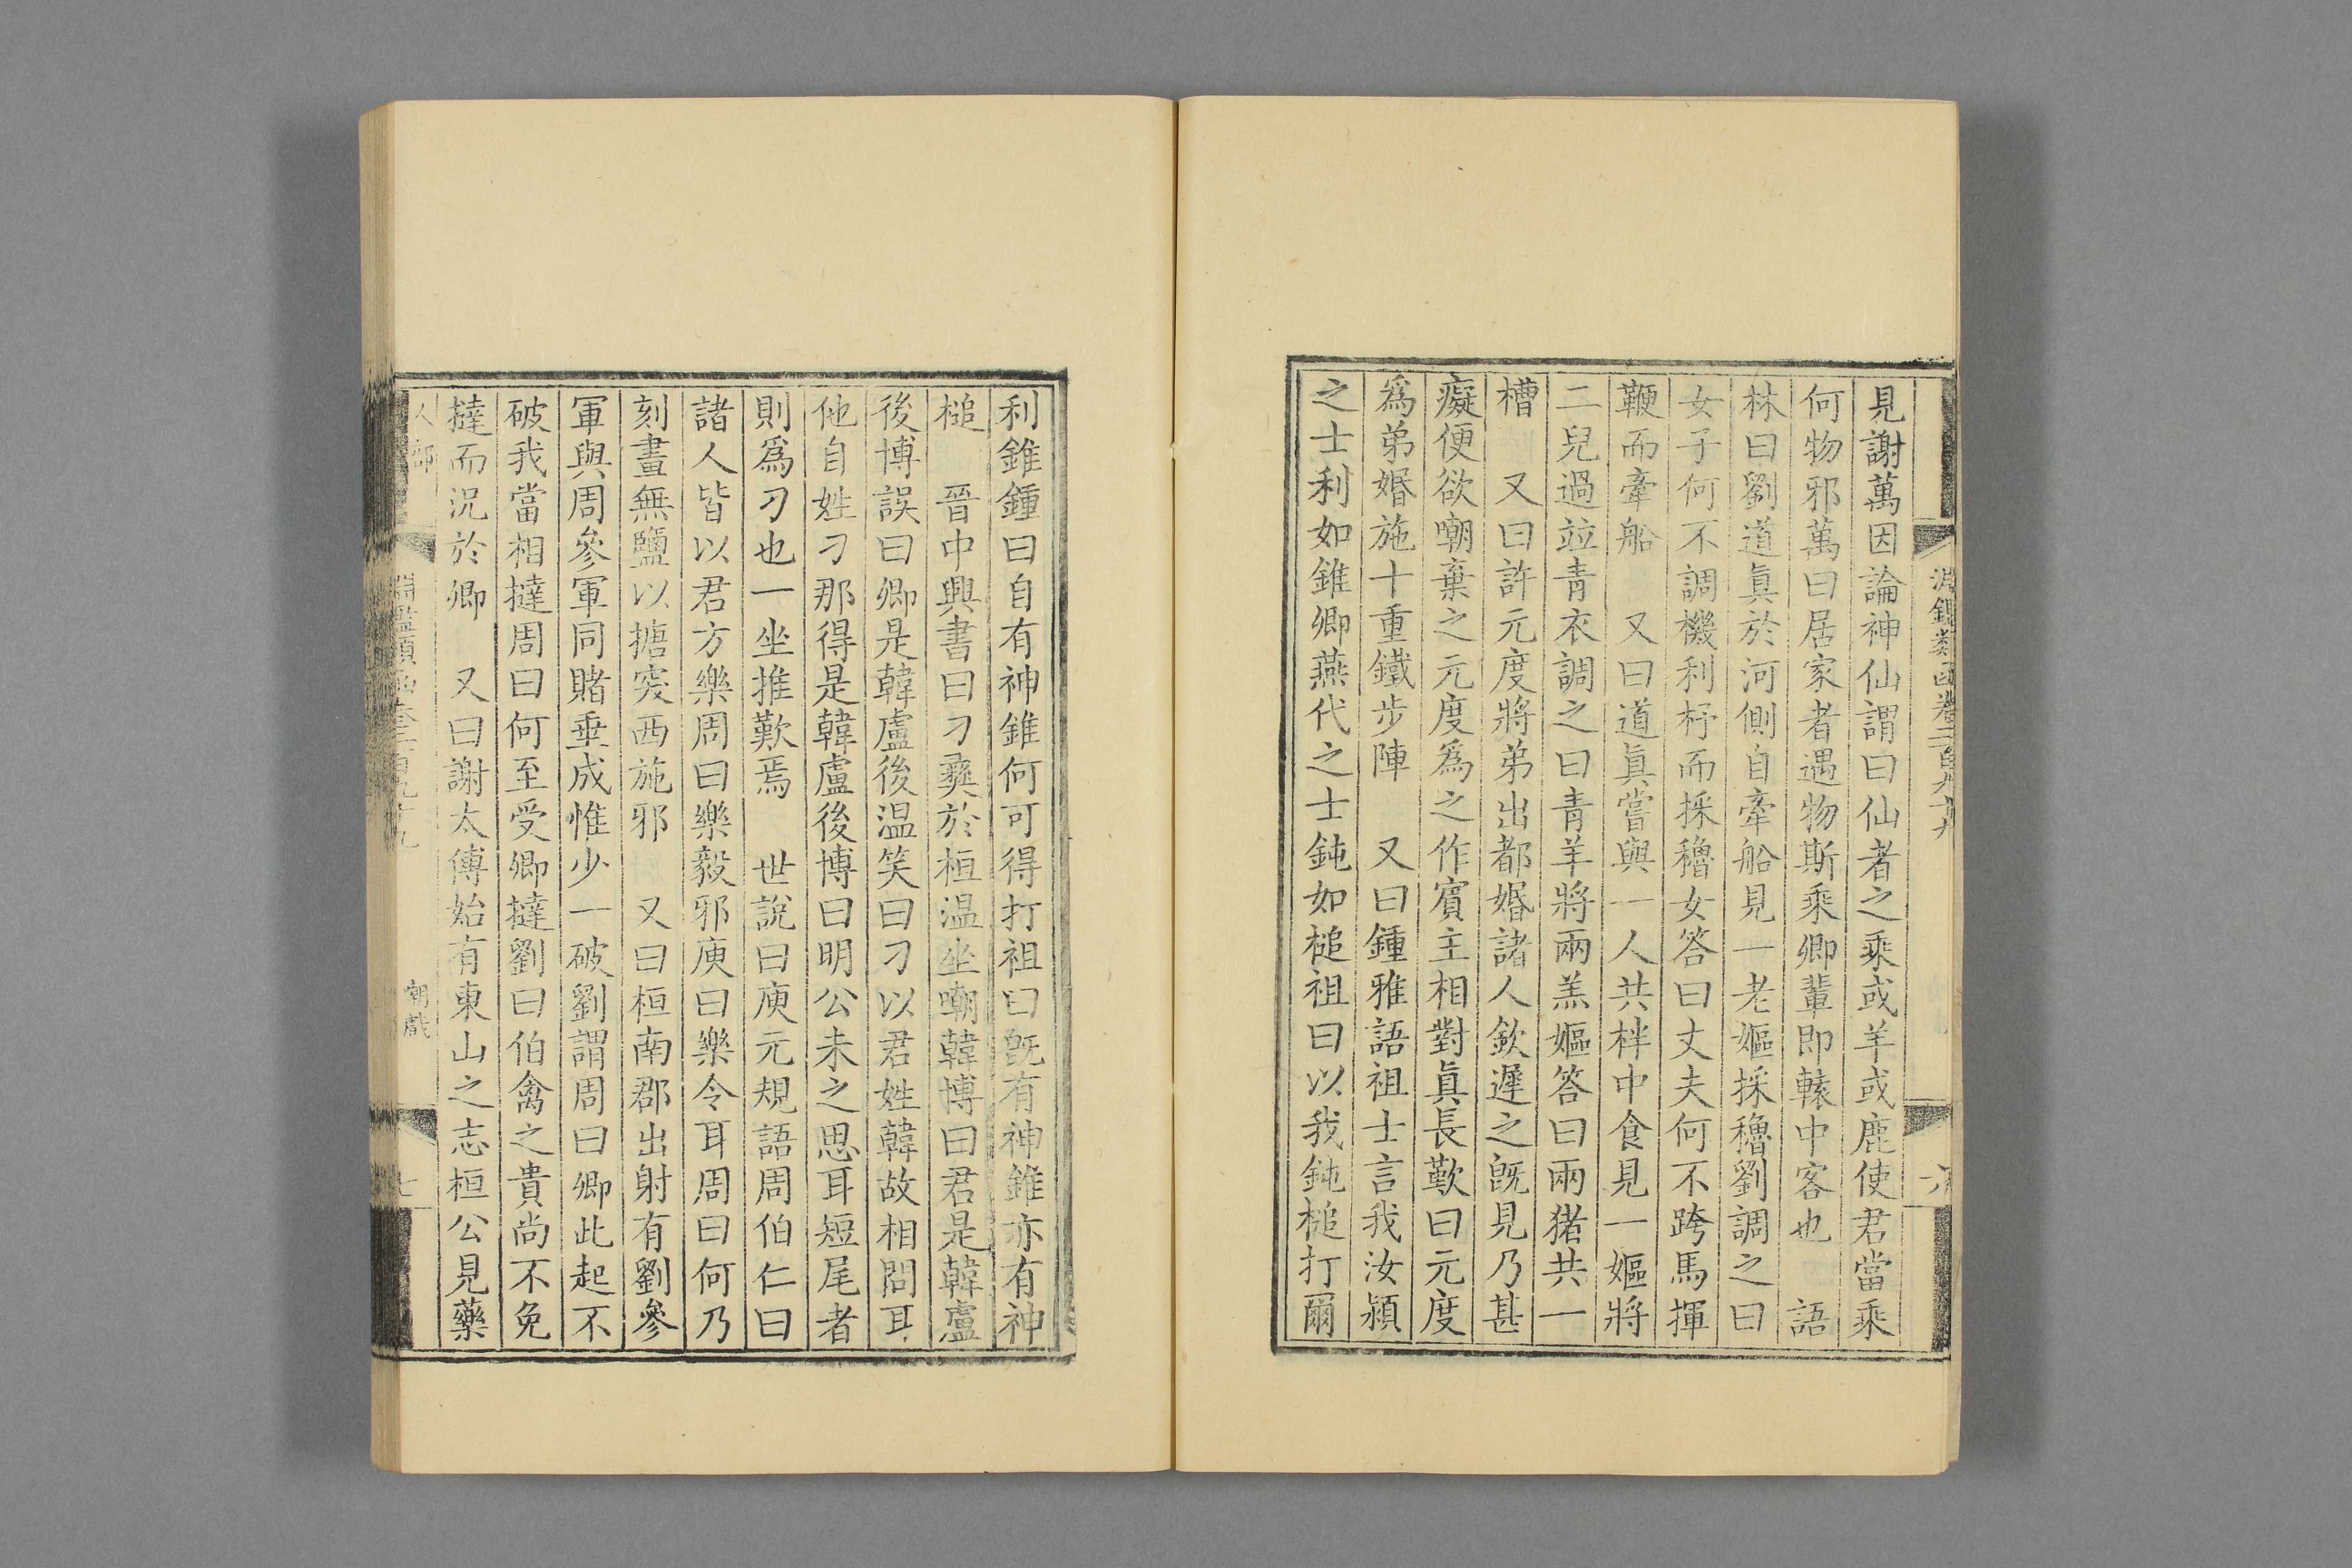 淵鑑類函卷二百九十九
六
見謝萬因論神仙謂曰仙者之乘或羊或鹿使君當乘
何物邪萬曰居家者遇物斯乘卿輩即轅中客也　語
林曰劉道眞於河側自牽船見一老嫗採穭劉調之曰
女子何不調機利杼而採穭女答曰丈夫何不跨馬揮
鞭而牽船　又曰道眞嘗與一人共柈中食見一嫗將
二兒過竝青衣調之曰青羊將兩羔嫗答曰兩猪共一
槽　又曰許元度將弟出都婚諸人欽遲之旣見乃甚
癡便欲嘲棄之元度爲之作賓主相對眞長歎曰元度
爲弟婚施十重鐵步陣　又曰鍾雅語祖士言我汝潁
之士利如錐卿燕代之士鈍如槌祖曰以我鈍槌打爾
利錐鍾曰自有神錐何可得打祖曰旣有神錐亦有神
槌　晉中興書曰刁彝於桓温坐嘲韓博曰君是韓盧
後博誤曰卿是韓盧後温笑曰刁以君姓韓故相問耳
他自姓刁那得是韓盧後博曰明公未之思耳短尾者
則爲刁也一坐推歎焉　世說曰庾元規語周伯仁曰
諸人皆以君方樂周曰樂毅邪庾曰樂令耳周曰何乃
刻畫無鹽以搪突西施邪　又曰桓南郡出射有劉參
軍與周參軍同賭垂成惟少一破劉謂周曰卿此起不
破我當相撻周曰何至受卿撻劉曰伯禽之貴尚不免
撻而況於卿　又曰謝太傅始有東山之志桓公見藥
人部
淵鑑類函卷二百九十九
嘲戲
七